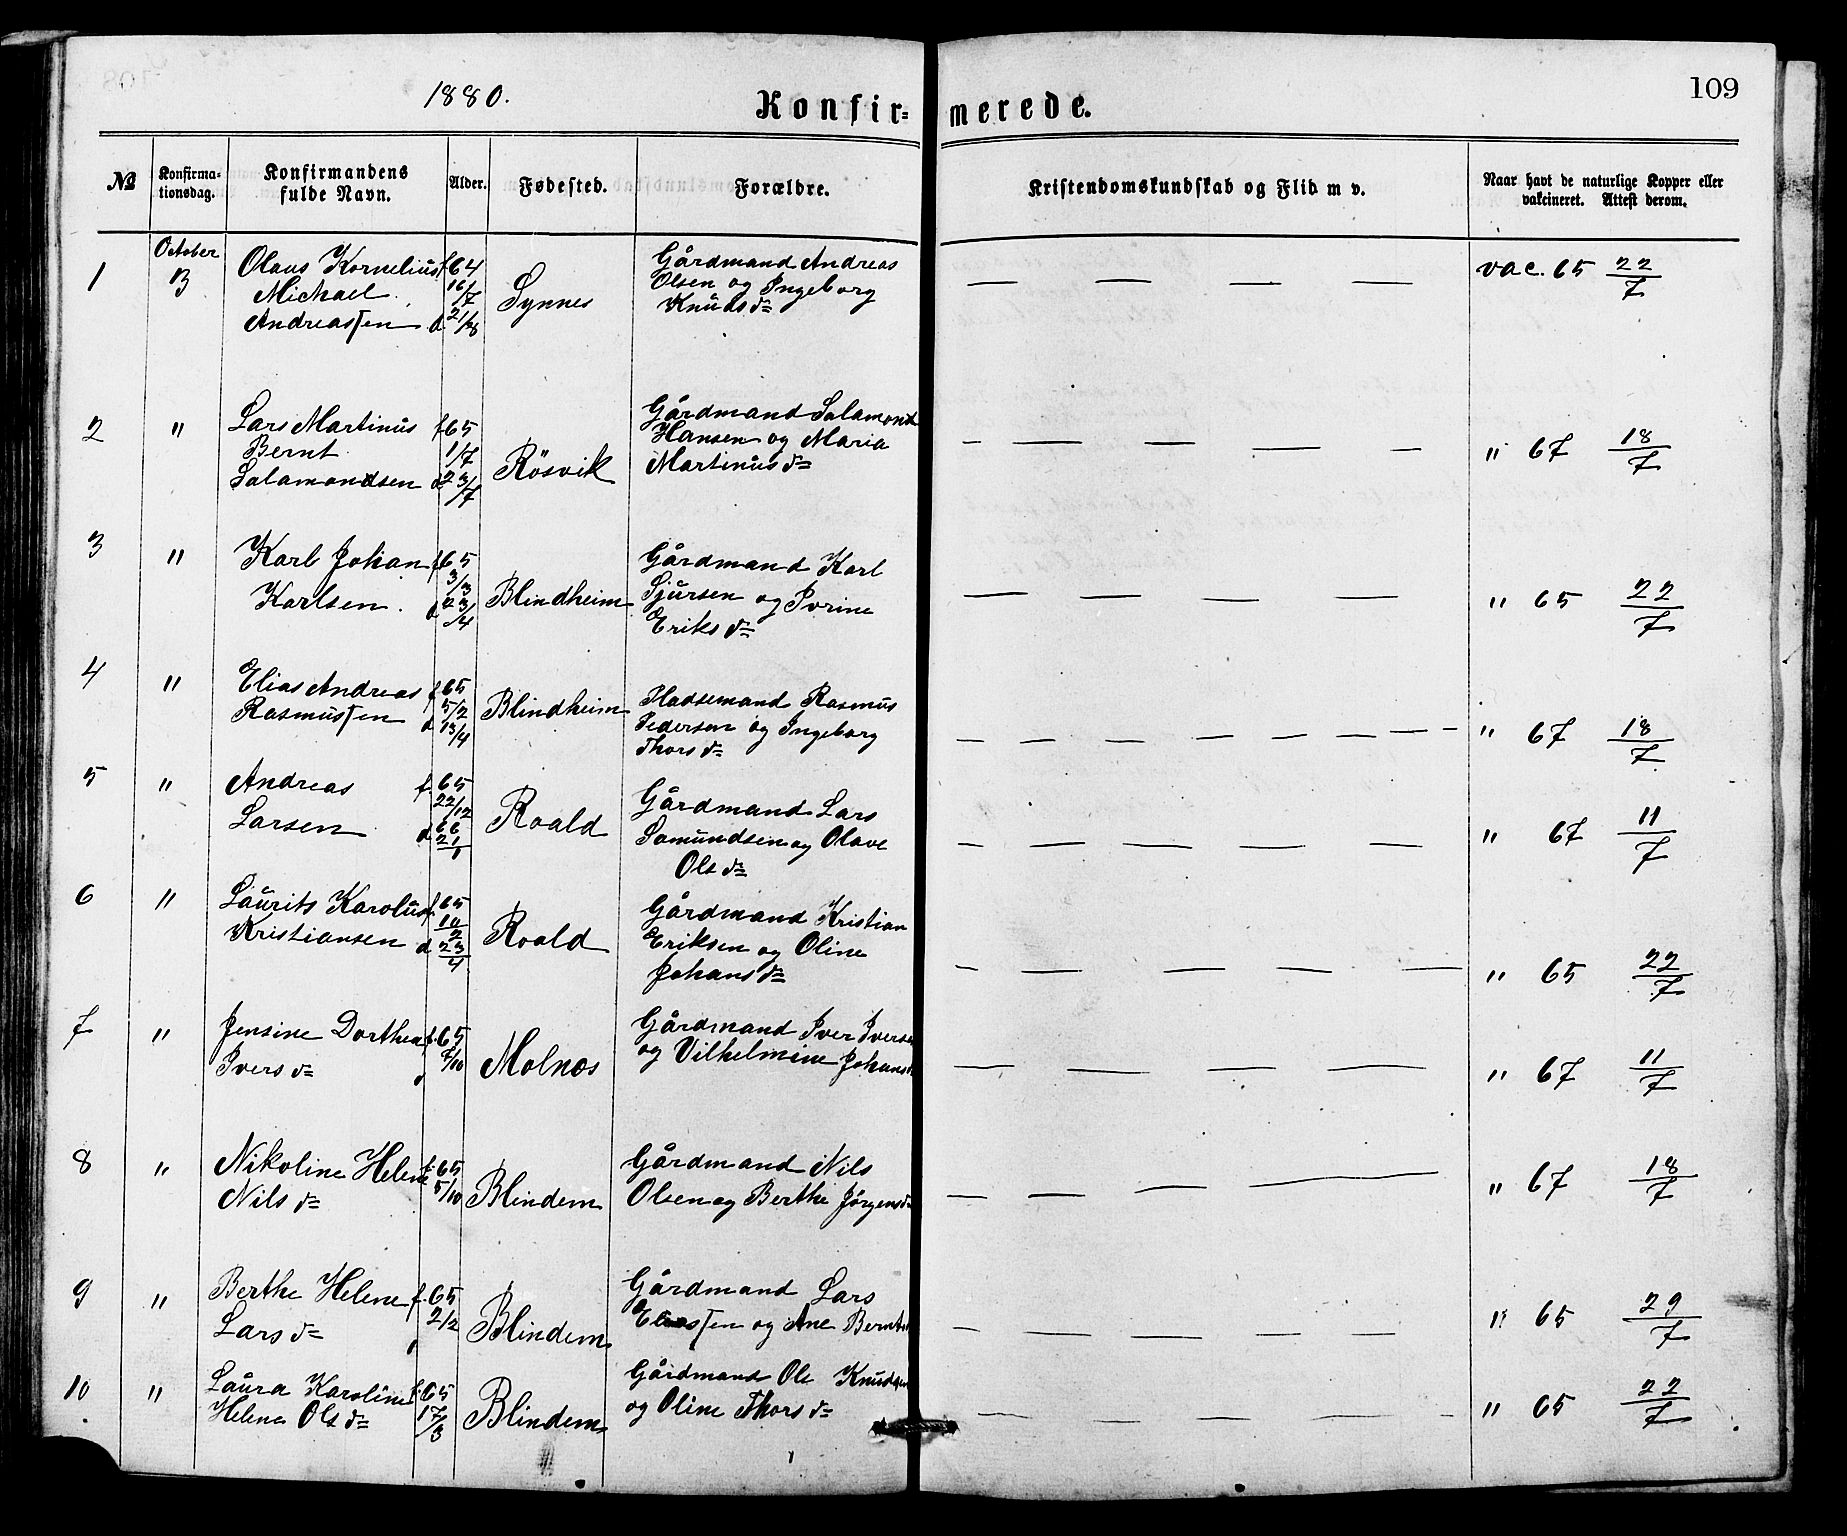 1880.
109
Konfir= merede.
No Konfirma-
tionsdag. Konfirmandens
fulde Navn. Alder. Fødested. Forældre. Kristendomskundskab og Flid m v. Naar havt de naturlige Kopper eller
vakcineret. Attest derom.
October
1 Olaus Kornelius f 64 Synnes Gårdmand Andreas vac. 65 22/7
Michael 16/7 Olsen og Ingeborg
Andreasſen d. 21/8 Knuds d=
2 " Lars Martinus f 65 Rösvik Gårdmand Salamond " 67 18/7
Bernt 1/7 Hansen og Maria
Salamondsen d 23/7 Martinus d=
3 " Karl Johan f 65 Blindheim Gårdmand Karl " 65 22/7
3/3 Sjursen og Ivrine
Karlsen. d 23/4 Eriks d=
4 " Elias Andreas f 65 Blindheim Pladsemand Rasmus " 67 18/7
Rasmusſen 5/2 Pedersen og Ingeborg
d 13/4 Thors d=
5 " Andreas f. 65 Roald Gårdmand Lars " 67 11/7
22/12 Samundsen og Olave
Larsen d 66 21/1 Ols d=
6 " Laurits Karolus f. 65 Roald Gårdmand Kristian " 65 22/7
10/2 Eriksen og Oline
Kristiansen d 23/4 Johans d=
7 " Jensine Dorthea f. 65 Molnes Gårdmand Iver Iversen " 67 11/7
Ivers d= 7/10 og Vilhelmine Johans
8 " Nikoline Helene f. 65 Blindem Gårdmand Nils " 67 18/7
Nils d= 5/10 Olsen og Berthe Jørgens d=
9 " Berthe Helene f. 65 Blindem Gårdmand Lars " 65 29/7
Lars d= 2/2 Eliasſen og Ane Bernts
10 " Laura Karoline f. 65 Blindem Gårdmand Ole Knudsen " 65 22/7
Helene Ols d= 17/3 og Oline Thors d=